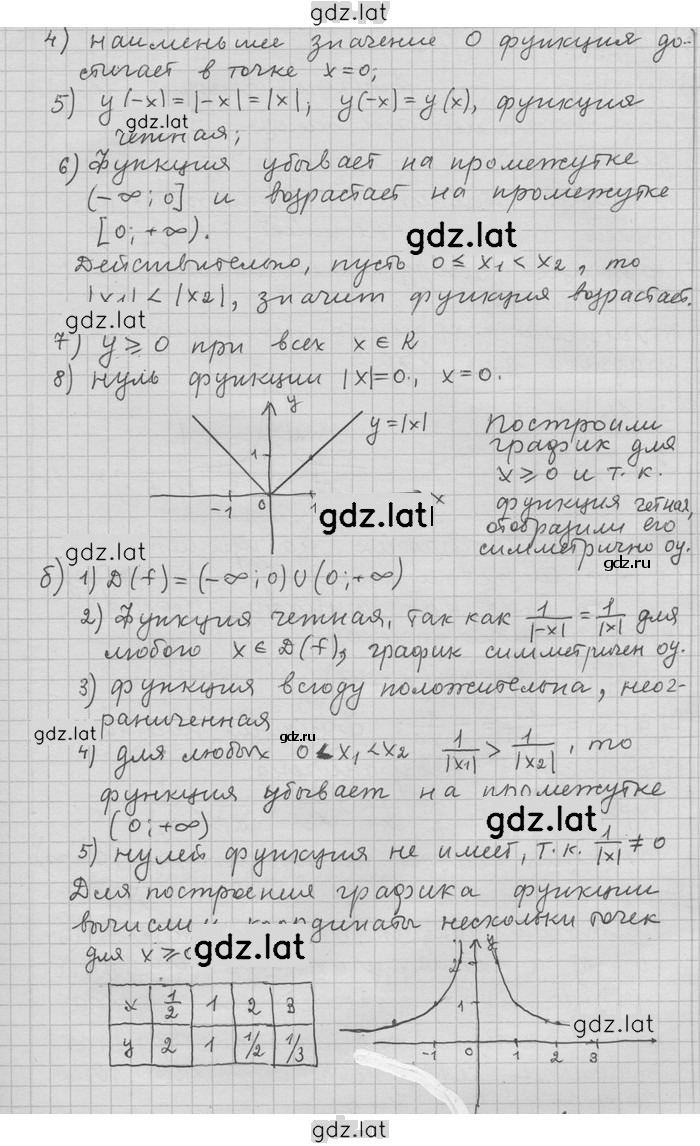 gdz.lat
4) наименьшее значение 0 функция до-
стигает в точке x=0;
5) y(-x)=|-x|=|x|; y(-x)=y(x), функция
gdz.lat
четная;
6) Функция убывает на промежутке
(-∞; 0] и возрастает на промежутке
[0; +∞).
gdz.lat
Действительно, пусть 0≤x₁<x₂, то
|x₁|<|x₂|, значит функция возрастает.
gdz.lat
7) y≥0 при всех x∈R
8) нуль функции |x|=0, x=0.
y
y=|x|
1
-1 0 1 x
Построили
график для
x≥0 и т.к.
функция четная,
отобразили его
симметрично оу.
gdz.lat
gdz.lat
б) 1) D(f)=(-∞;0)∪(0;+∞)
2) Функция четная, так как 1/|-x| = 1/|x| для
любого x∈D(f), график симметричен оу.
3) функция всюду положительна, неог-
раниченная
gdz.lat
gdz.ru
4) для любых 0<x₁<x₂ 1/|x₁| > 1/|x₂|, то
функция убывает на промежутке
(0; +∞)
gdz.lat
5) нулей функция не имеет, т.к. 1/|x| ≠ 0
Для построения графика функции
координаты нескольки точек
для x≥
gdz.lat
x 1/2 1 2 3
y 2 1 1/2 1/3
y
2
1
-1 0 1 2 3
gdz.lat
gdz.lat